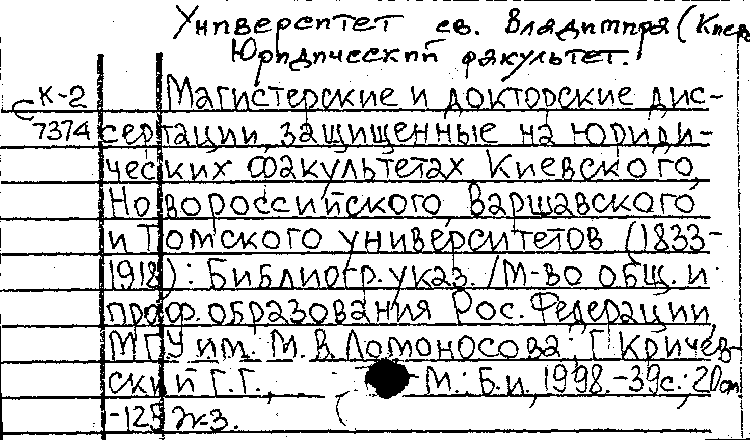 Университет св. Владимира (Киев
Юридический факультет.
К-2
7374
Магистерские и докторские дис-
сертации, защищенные на юриди-
ческих факультетах Киевского,
Новороссийского, Варшавского
и Томского университетов (1833-
1918): Библиогр. указ. / М-во общ. и
проф. образования Рос. Федерации,
МГУ им. М. В. Ломоносова; [Кричев-
ский Г. Г., М.: Б.и., 1998. -39с.; 20см
-125 экз.